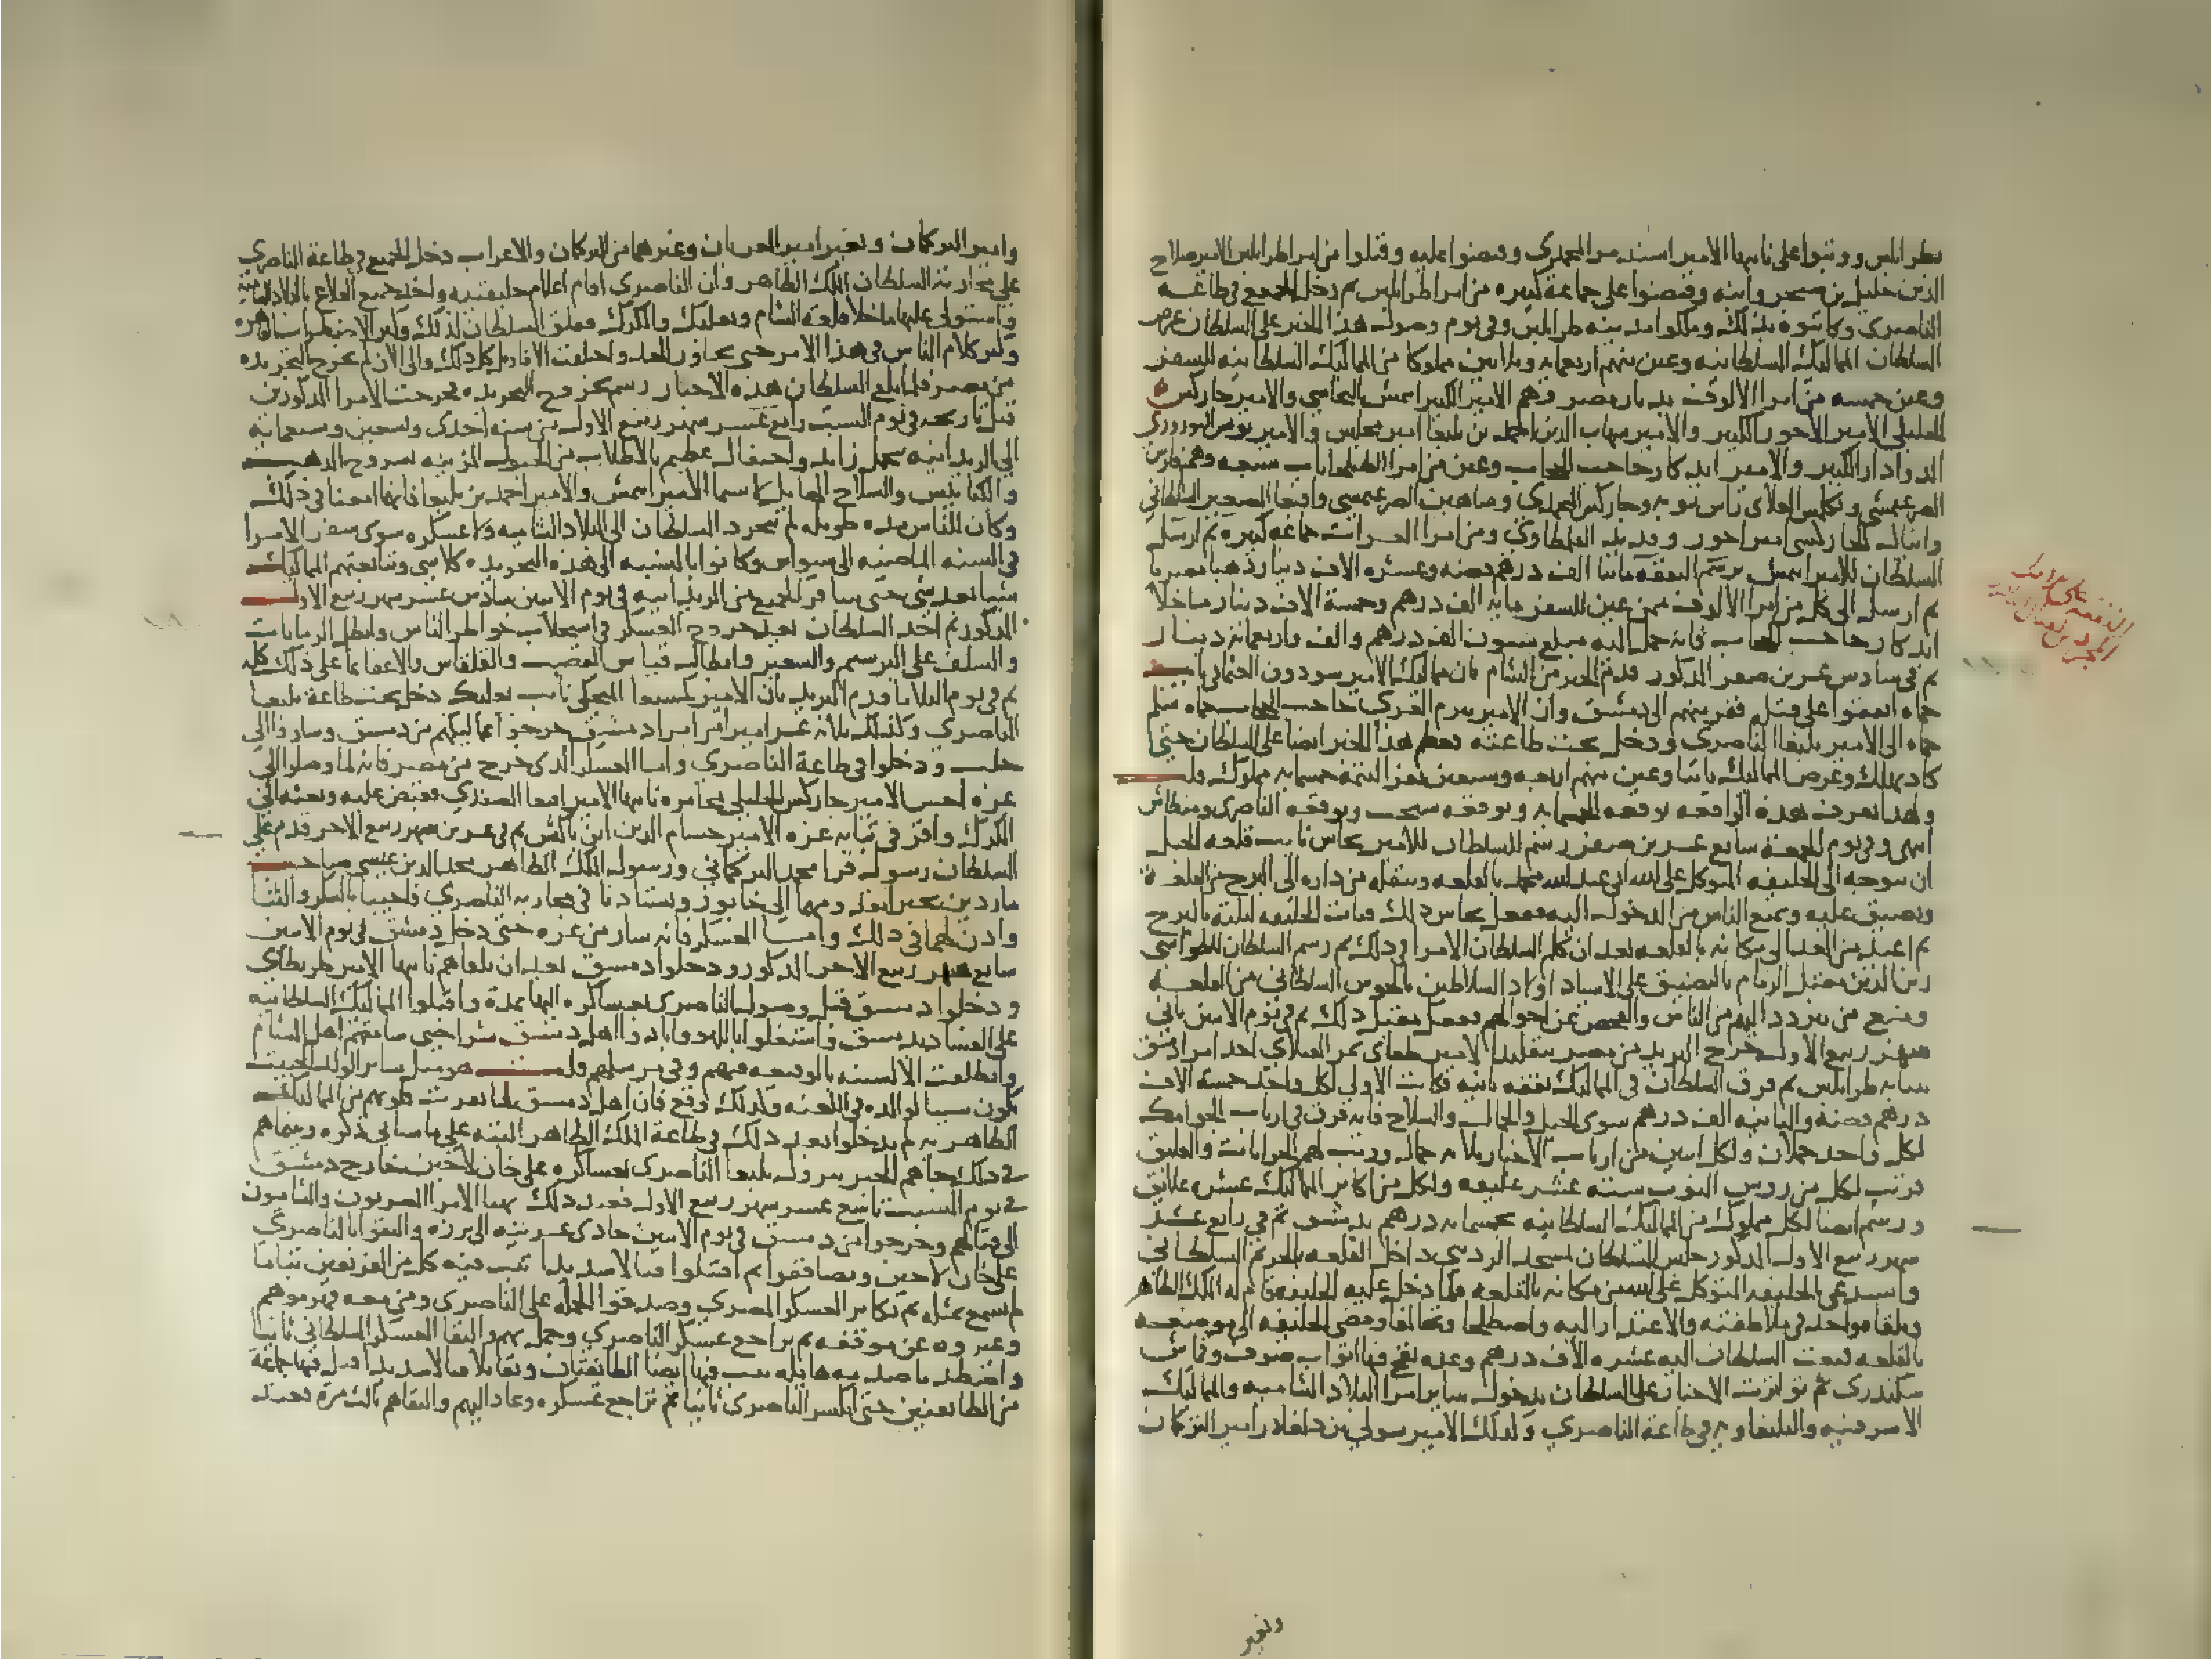 بطرابلس ووثبوا على نايبها الامير اسندمر المحمدى وقبضوا عليه وقتلوا من امرا طرابلس الامير صلاح
الدين خليل بن سنجر وابنه وقبضوا على جماعة كبيره من امرا طرابلس ثم دخل الجميع فى طاعة
الناصرى وكاتبوه بذلك وملكوا مدينه طرابلس وفى يوم وصول هذا الخبر على السلطان عرض
السلطان المماليك السلطانيه وعين منهم اربعمايه وثلاثين مملوكا من المماليك السلطانيه للسفر
وعين خمسه من امرا الالوف بديار مصر وهم الامير الكبير ايتمش البجاسى والامير جاركس
الخليلى الامير الاخور الكبير والامير شهاب الدين احمد بن يلبغا امير مجلس والامير يونس النوروزى
الدوادار الكبير والامير ايدكار حاجب الحجاب وعين من امرا الطبلخانات سبعه وهم فارس
الصرغتمشى وبكلمش العلاى راس نوبه وجاركس المحمدى وشاهين الصرغتمشى واقبغا الصغير السلطانى
واينال الجاركسى امير اخور وقديد القلمطاوى ومن امرا العشرات جماعه كبيره ثم ارسل
السلطان للامير ايتمش برسم النفقه مايتا الف درهم فضه وعشره الاف دينار ذهبا مصريا
ثم ارسل الى كل من امرا الالوف ممن عين للسفر مايه الف درهم وخمسة الاف دينار ماخلا
ايدكار حاجب الحجاب فانه حمل اليه مبلغ ستون الف درهم والف واربعمايه دينار
ثم فى سادس عشرين صفر المذكور قدم الخبر من الشام بان مماليك الامير سودون العثمانى نايب
حماه اتفقوا على قتله ففر منهم الى دمشق وان الامير بيرم العزى حاجب الحجاب بحماه سلم
حماه الى الامير يلبغا الناصرى ودخل تحت طاعته فعظم هذا الخبر ايضا على السلطان حتى
كاد يهلك وعرض المماليك ثانيا وعين منهم اربعه وسبعين نفرا لتتمة خمسمايه مملوك قلت
ولهذا تعرف هذه الواقعه بوقعه الخمسمايه وبوقعه شقحب وبوقعه الناصرى ومنطاش
انتهى وفى يوم الجمعة سابع عشرين صفر رسم السلطان للامير بجاس نايب قلعه الجبل
ان يتوجه الى الخليفه المتوكل على الله ابى عبد الله محمد بالقلعه وينقله من داره الى البرج من القلعة
ويضيق عليه ويمنع الناس من الدخول اليه ففعل بجاس ذلك فبات الخليفه ليلته بالبرج
ثم اعيد من الغد الى مكانه بالقلعه بعد ان كلم السلطان الامرا فى ذلك ثم رسم السلطان للطواشى
زين الدين مقبل الزمام بالتضييق على الاسياد اولاد السلاطين بالحوش السلطانى من القلعه
ومنع من يتردد اليهم من الناس والفحص عن احوالهم ففعل مقبل ذلك ثم فى يوم الاثنين ثانى
شهر ربيع الاول خرج البريد من مصر بتقليد الامير طغاى تمر القبلاى احد امرا دمشق
بنيابه طرابلس ثم فرق السلطان فى المماليك نفقه ثانيه فكانت الاولى لكل واحد خمسه الاف
درهم فضة والثانيه الف درهم سوى الخيل والجمال والسلاح فانه فرق فى ارباب الجوامك
لكل واحد جملان ولكل اثنين من ارباب الاخباز ثلاثه جمال ورتب لهم الجرايات والعليق
فرتب لكل من روس النوب سته عشر عليقه ولكل من اكابر المماليك عشره علايق
ورسم ايضا لكل مملوك من المماليك السلطانيه بخمسمايه درهم بدمشق ثم فى رابع عشر
شهر ربيع الاول المذكور جلس السلطان بمسجد الردينى داخل القلعه بالحريم السلطانى
واستدعى الخليفه المتوكل على الله من مكانه بالقلعه فلما دخل عليه الخليفة قام له الملك الظاهر
وتلقاه واخذ فى ملاطفته والاعتذار اليه واصطلحا وتحالفا ومضى الخليفه الى موضعه
بالقلعه فبعث السلطان اليه عشره الاف درهم وعده بقج فيها اثواب صوف وقماش
سكندرى ثم تواترت الاخبار على السلطان بدخول ساير امرا البلاد الشاميه والمماليك
الاشرفيه واليلبغاويه فى طاعة الناصرى وكذلك الامير سولى بن دلغادر امير التركمان
ونعير
النفقه على المماليك
وامير التركمان ونعير امير العربان وغيرهما من التركمان والاعراب دخل الجميع فى طاعة الناصرى
على محاربه السلطان الملك الظاهر وان الناصرى اقام اعلام خليفتيه واخذ جميع القلاع بالبلاد الشاميه
واستولى عليها ماخلا قلعه الشام وبعلبك والكرك فقلق السلطان لذلك وكثر الاضطراب بالقاهره
وكثر كلام الناس فى هذا الامر حتى تجاوز الحد واختلفت الاقاويل كل ذلك والى الان لم تخرج التجريده
من مصر فلما بلغ السلطان هذه الاخبار رسم بخروج التجريده فخرجت الامرا المذكورين
قبل تاريخه فى يوم السبت رابع عشر شهر ربيع الاول من سنه احدى وتسعين وسبعمايه
الى الريدانيه بتجمل زايد واحتفال عظيم بالاطلاب من الخيول المزينه بسروج الذهب
والكنابيش والسلاح الهايل لا سيما الامير ايتمش والامير احمد بن يلبغا فانهما امعنا فى ذلك
وكان للناس مده طويله لم يتجرد السلطان الى البلاد الشاميه ولا عسكره سوى سفر الامرا
فى السنه الماضيه الى سيواس وكانوا بالنسبه الى هذه التجريده كلا شى وتتابعتهم المماليك
شيا بعد شى حتى سافر الجميع من الريدانيه فى يوم الاثنين سادس عشر شهر ربيع الاول
المذكور ثم اخذ السلطان بعد خروج العسكر فى استجلاب خواطر الناس وابطل الرمايات
والسلف على البرسيم والشعير وابطال قياس القصب والقلقاس والاعفا على ذلك كله
ثم فى يوم الثلاثا قدم البريد بان الامير كمشبغا المنجكى نايب بعلبك دخل تحت طاعة يلبغا
الناصرى وكذلك ثلاثه عشر اميرا من امرا دمشق خرجوا مماليكهم من دمشق وساروا الى
حلب ودخلوا فى طاعة الناصرى واما العسكر الذى خرج من مصر فانه لما وصلوا الى
غزه احس الامير جاركس الخليلى بمخامره نايبها الامير اقبغا الصفوى فقبض عليه وبعثه الى
الكرك واقر فى نيابه غزه الامير حسام الدين ابن باكيش ثم فى عشرين شهر ربيع الاخر قدم على
السلطان رسول قرا محمد التركمانى ورسول الملك الظاهر مجد الدين عيسى صاحب
ماردين بخبر بقدومهما الى خابور ويستاذنا فى محاربه الناصرى فاجيبا بالشكر والثنا
واذن لهما فى ذلك واما العسكر فانه سار من غزه حتى دخل دمشق فى يوم الاثنين
سابع شهر ربيع الاخر المذكور ودخلوا دمشق بعد ان تلقاهم نايبها الامير طرنطاى
ودخلوا دمشق قبل وصول الناصرى بعساكره اليها بمدة واقبلوا المماليك السلطانيه
على الفساد بدمشق واشتغلوا باللهو وابادوا اهل دمشق شرا حتى سامتهم اهل الشام
وانطلقت الالسنه بالوقيعه فيهم وفى مرسلهم قلت هو مثل ساير الولد الخبيث
يكون سببا لوالده فى اللعنه وكذلك وقع فان اهل دمشق لما نفرت قلوبهم من المماليك
الظاهريه لم يدخلوا بعد ذلك فى طاعة الملك الظاهر البته على ما ساتى ذكره وبينما هم
فى ذلك جاهم الخبر بنزول يلبغا الناصرى بعساكره على خان لاجين خارج دمشق
فى يوم السبت تاسع عشر شهر ربيع الاول فعند ذلك تهيا الامرا المصريون والشاميون
الى قتالهم وخرجوا من دمشق فى يوم الاثنين حادى عشرينه الى برزه والتقوا بالناصرى
على خان لاجين وتصاففوا ثم اقتتلوا قتالا شديدا ثبت فيه كل من الفريقين ثباتا
لم يسمع بمثله ثم تكاثر العسكر المصرى وصدقوا الحملة على الناصرى ومن معه فهزموهم
وغيروه عن موقفه ثم تراجع عسكر الناصرى وحمل بهم والتقا العسكر السلطانى ثانيا
واصطدما صدمه هايله ثبت فيها ايضا الطايفتان وتقاتلا قتالا شديدا قتل فيها جماعة
من الطايفتين حتى انكسر الناصرى ثانيا ثم تراجع عسكره وعاد اليهم والتقاهم ثالث مره فعند